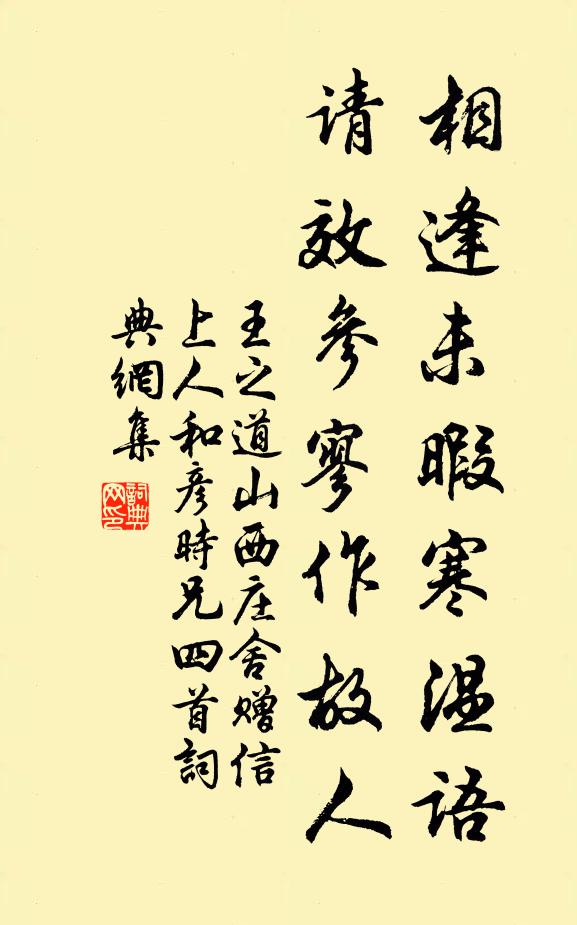 相逢未暇寒温语
请效参寥作故人
王之道山西庄舍赠信
上人和彦时兄四首詞
典網集
詞典
网印